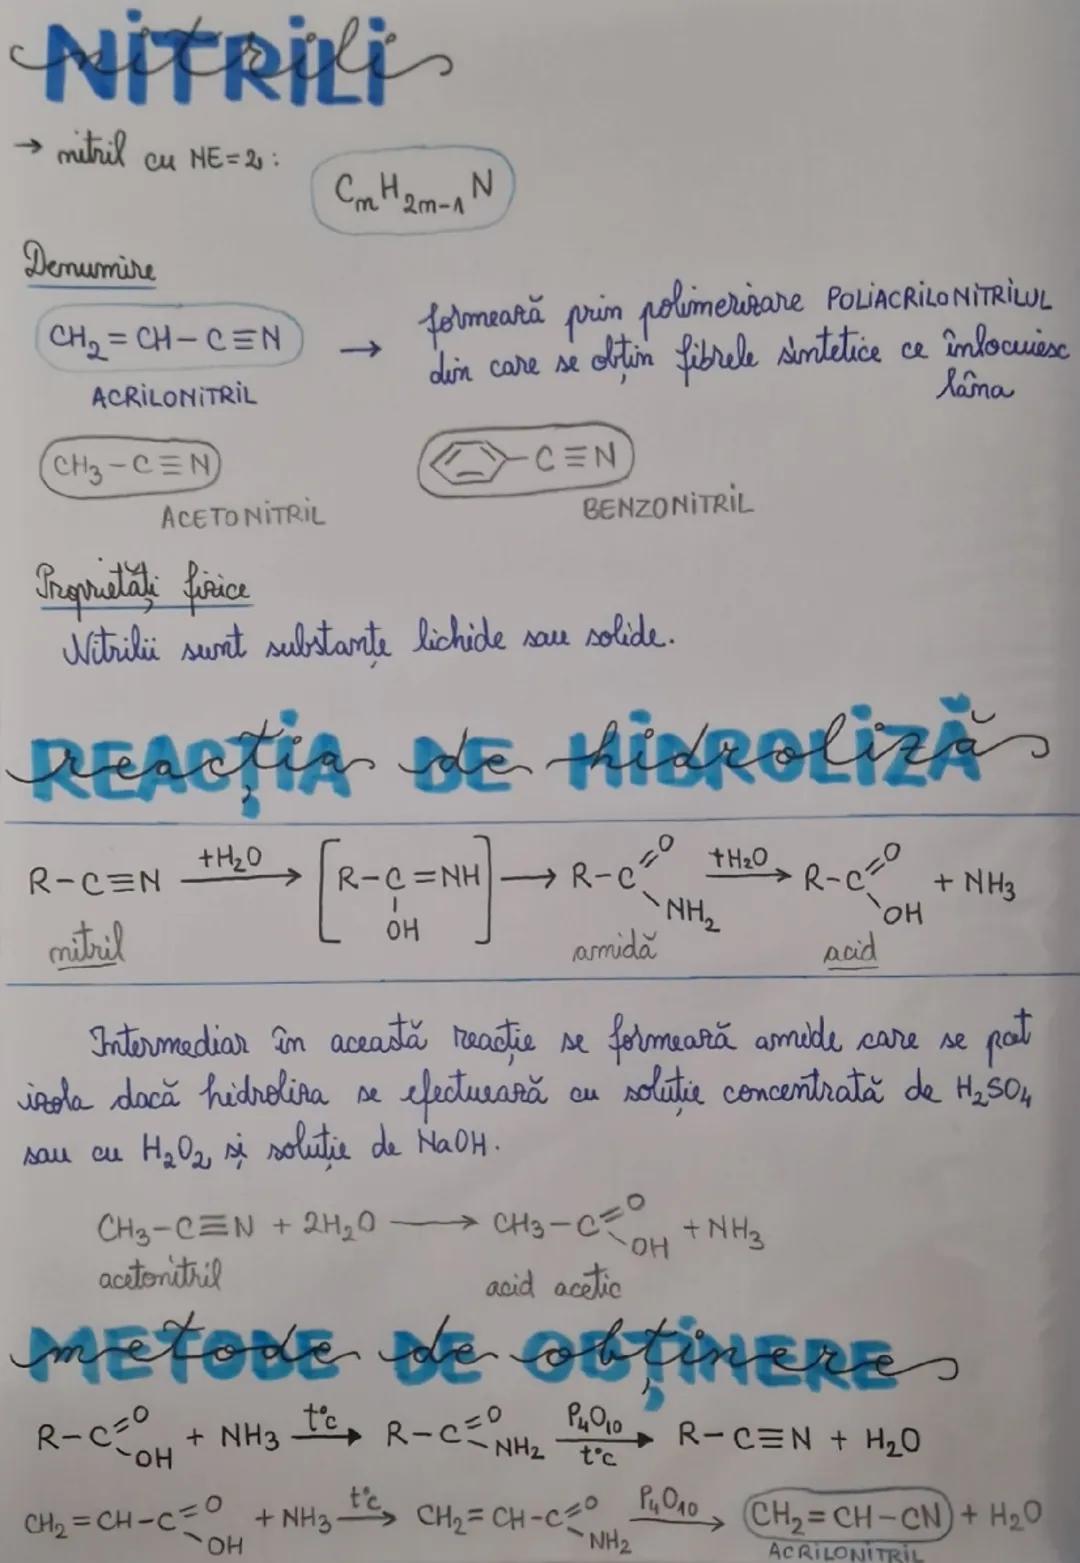 NITRILI
→ nitril cu NE=2:
CnH2n-1N
Denumire
CH2=CH-C≡N → formează prin polimerizare POLIACRILONITRILUL
din care se obțin fibrele sintetice ce înlocuiesc
lâna
ACRILONITRIL
CH3-C≡N
-C≡N
ACETONITRIL
BENZONITRIL
Proprietăți fizice
Nitrilii sunt substanțe lichide sau solide.
REACȚIA DE HIDROLIZĂ
R-C≡N +H2O → [R-C=NH] → R-C=O +H2O → R-C=O + NH3
OH NH2 OH
nitril amidă acid
Intermediar în această reacție se formează amide care se pot
izola dacă hidroliza se efectuează cu soluție concentrată de H2SO4
sau cu H2O2 și soluție de NaOH.
CH3-C≡N + 2H2O → CH3-C=O + NH3
OH
acetonitril acid acetic
METODE DE OBȚINERE
R-C=O + NH3 t°c → R-C=O P4O10 → R-C≡N + H2O
OH NH2 t°c
CH2=CH-C=O + NH3 t°c → CH2=CH-C=O P4O10 → CH2=CH-CN + H2O
OH NH2
ACRILONITRIL